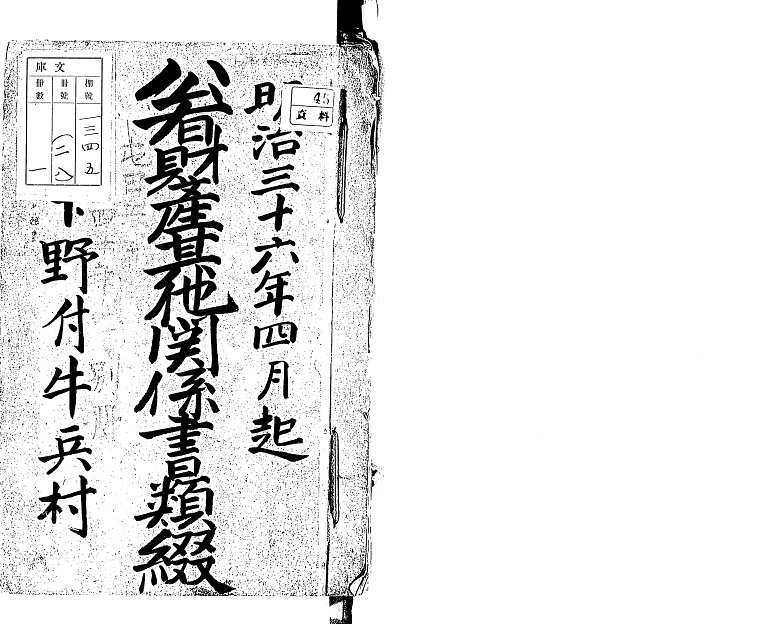 明治三十六年四月起
45
資料
公有財産其他関係書類綴
下野付牛兵村
文庫
棚號
一三四五
冊數
一